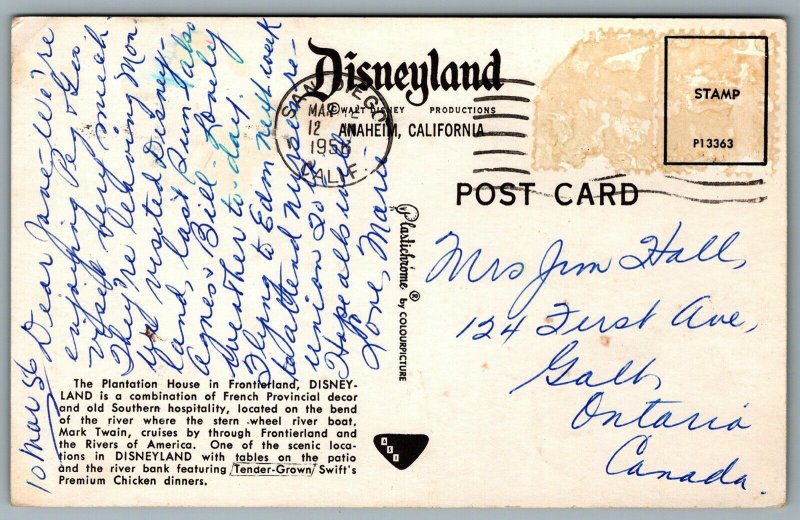 10 Mar 56 Dear Jane - We're
enjoying Peg & Geo
visit very much.
They're leaving Mon.
We visited Disney-
land, last Sun also
Agnes & Bill. Lovely
weather to-day.
Flying to Edm next week
to attend nurses re-
union 20
Hope all is well.
Love, Marie
Disneyland
© WALT DISNEY PRODUCTIONS
ANAHEIM, CALIFORNIA
SAN DIEGO
MAR 12
12
1956
CALIF.
STAMP
P13363
POST CARD
Plastichrome ® by COLOURPICTURE
Mrs Jim Hall,
124 First Ave,
Galt,
Ontario
Canada.
The Plantation House in Frontierland, DISNEY-
LAND is a combination of French Provincial decor
and old Southern hospitality, located on the bend
of the river where the stern wheel river boat,
Mark Twain, cruises by through Frontierland and
the Rivers of America. One of the scenic loca-
tions in DISNEYLAND with tables on the patio
and the river bank featuring Tender-Grown Swift's
Premium Chicken dinners.